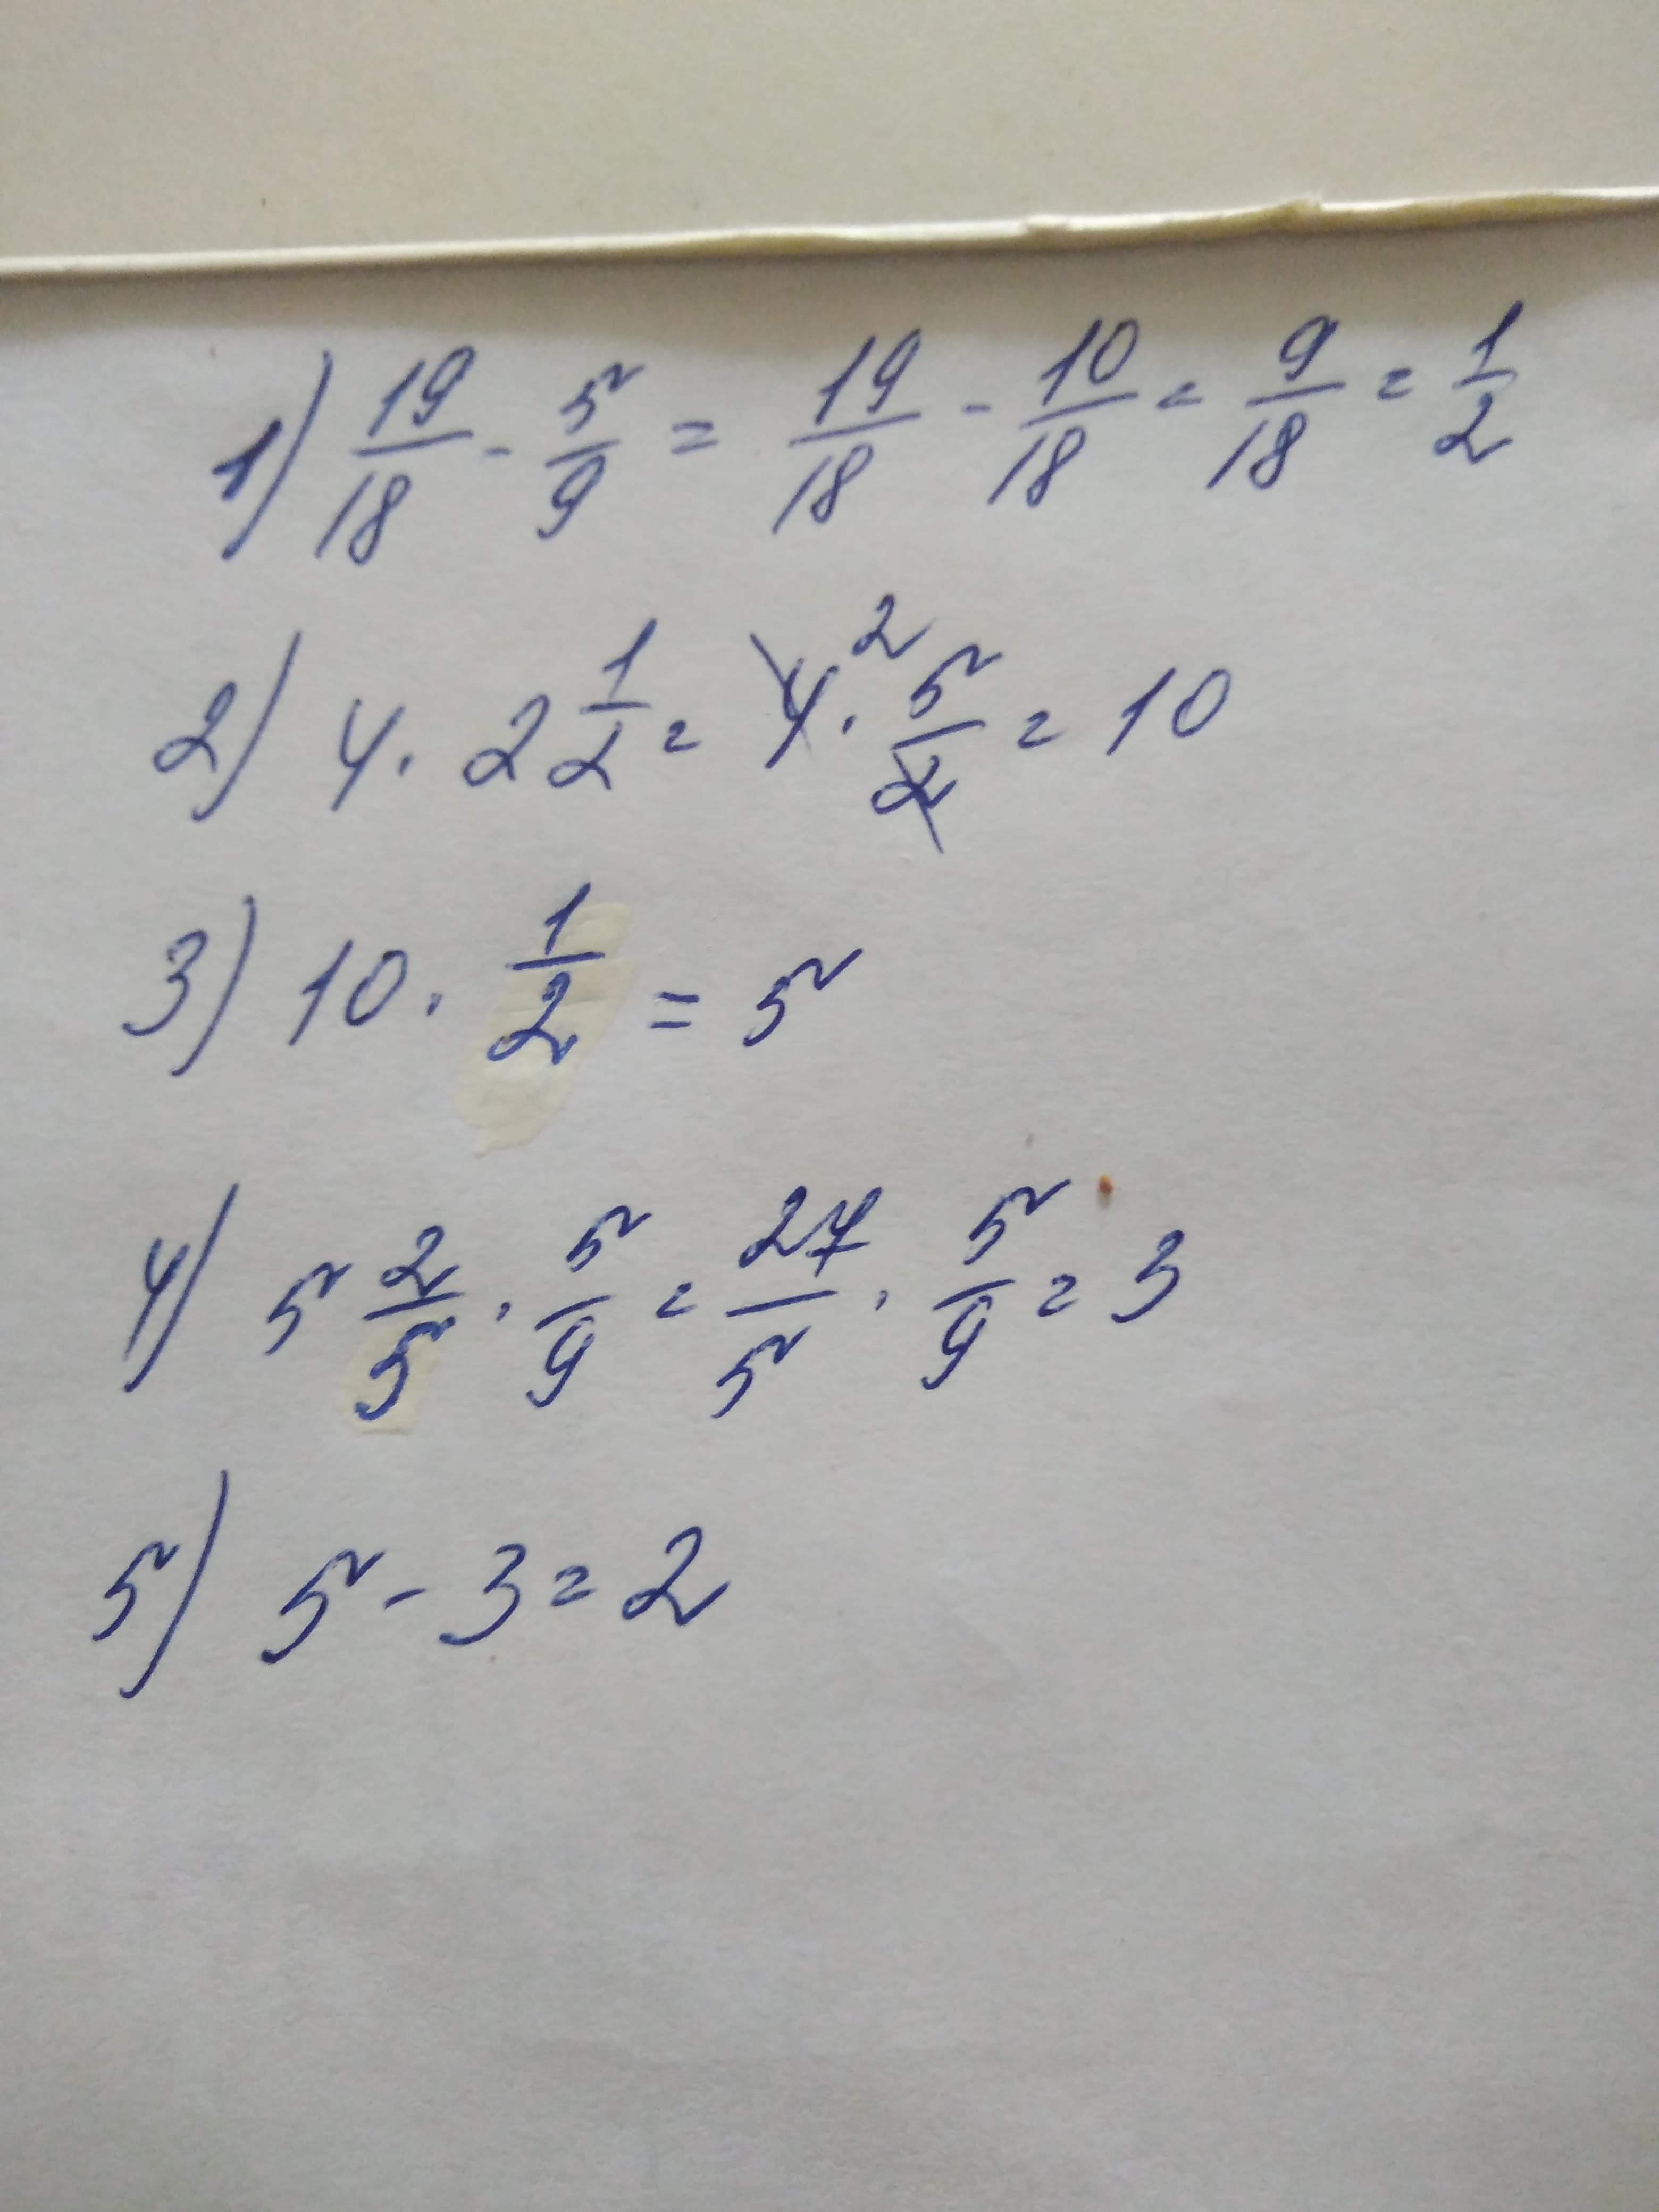 1) 19/18 - 5/9 = 19/18 - 10/18 = 9/18 = 1/2
2) 4 · 2 1/2 = 4 ² · 5/2 = 10
3) 10 · 1/2 = 5
4) 5 2/5 · 5/9 = 27/5 · 5/9 = 3
5) 5 - 3 = 2